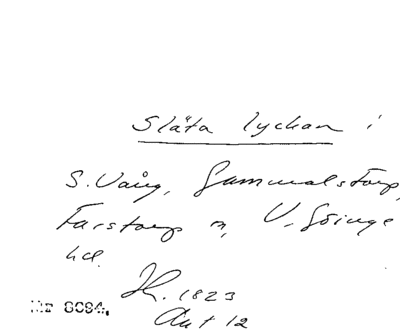 Släta lyckan i
S. Vång, Gammalstorp,
Farstorp s, V. Göinge
hd.
H. 1823
Akt 12
Nr 6094.